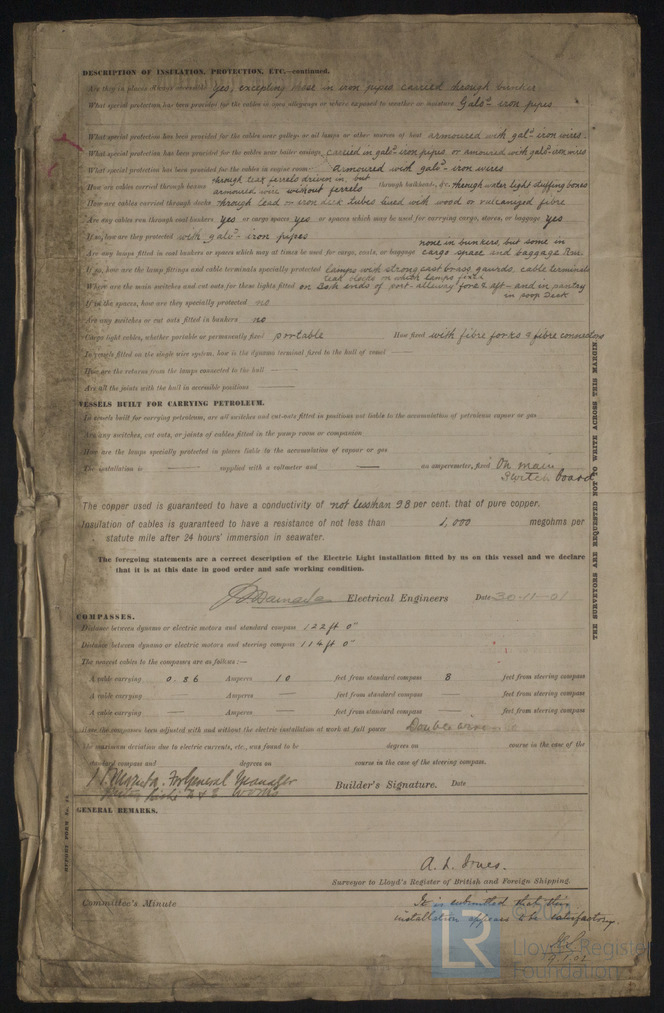 DESCRIPTION OF INSULATION, PROTECTION, ETC.—continued.
Are they in places always accessible yes, excepting those in iron pipes carried through bunker
What special protection has been provided for the cables in open alleyways or where exposed to weather or moisture Galvd iron pipes
What special protection has been provided for the cables near galleys or oil lamps or other sources of heat armoured with galvd iron wires.
What special protection has been provided for the cables near boiler casings carried in galvd iron pipes or armoured with galvd iron wires
What special protection has been provided for the cables in engine room armoured with galvd iron wires
How are cables carried through beams through lead ferrels driven in, but armoured wire without ferrels through bulkheads, &c. through water tight stuffing boxes
How are cables carried through decks through lead or iron deck tubes lined with wood or vulcanized fibre
Are any cables run through coal bunkers yes or cargo spaces yes or spaces which may be used for carrying cargo, stores, or baggage yes
If so, how are they protected with galvd iron pipes
Are any lamps fitted in coal bunkers or spaces which may at times be used for cargo, coals, or baggage none in bunkers, but some in cargo space and baggage Rm.
If so, how are the lamp fittings and cable terminals specially protected lamps with strong cast brass gaurds, cable terminals
Where are the main switches and cut outs for these lights fitted on Both ends of port-alleway fore & aft and in pantry in poop Deck
If in the spaces, how are they specially protected no
Are any switches or cut outs fitted in bunkers no
Cargo light cables, whether portable or permanently fixed portable How fixed with fibre forks & fibre connectors
In vessels fitted on the single wire system, how is the dynamo terminal fixed to the hull of vessel —
How are the returns from the lamps connected to the hull —
Are all the joints with the hull in accessible positions —
VESSELS BUILT FOR CARRYING PETROLEUM.
In vessels built for carrying petroleum, are all switches and cut-outs fitted in positions not liable to the accumulation of petroleum vapour or gas
Are any switches, cut outs, or joints of cables fitted in the pump room or companion
How are the lamps specially protected in places liable to the accumulation of vapour or gas
The installation is — supplied with a voltmeter and — an amperemeter, fixed On main Switch board
The copper used is guaranteed to have a conductivity of not less than 98 per cent. that of pure copper.
Insulation of cables is guaranteed to have a resistance of not less than 1,000 megohms per
statute mile after 24 hours' immersion in seawater.
The foregoing statements are a correct description of the Electric Light installation fitted by us on this vessel and we declare
that it is at this date in good order and safe working condition.
Electrical Engineers Date 30-11-01
COMPASSES.
Distance between dynamo or electric motors and standard compass 122 ft 0"
Distance between dynamo or electric motors and steering compass 114 ft 0"
The nearest cables to the compasses are as follows:—
A cable carrying 0.86 Amperes 10 feet from standard compass 8 feet from steering compass
A cable carrying — Amperes — feet from standard compass — feet from steering compass
A cable carrying — Amperes — feet from standard compass — feet from steering compass
Have the compasses been adjusted with and without the electric installation at work at full power Double wire
The maximum deviation due to electric currents, etc., was found to be degrees on course in the case of the
standard compass and degrees on course in the case of the steering compass.
For General Manager
Works
Builder's Signature. Date
GENERAL REMARKS.
Surveyor to Lloyd's Register of British and Foreign Shipping.
Committee's Minute
It is submitted that this
installation appears to be satisfactory.
9.1.02
THE SURVEYORS ARE REQUESTED NOT TO WRITE ACROSS THIS MARGIN.
LR
Lloyd's Register
Foundation